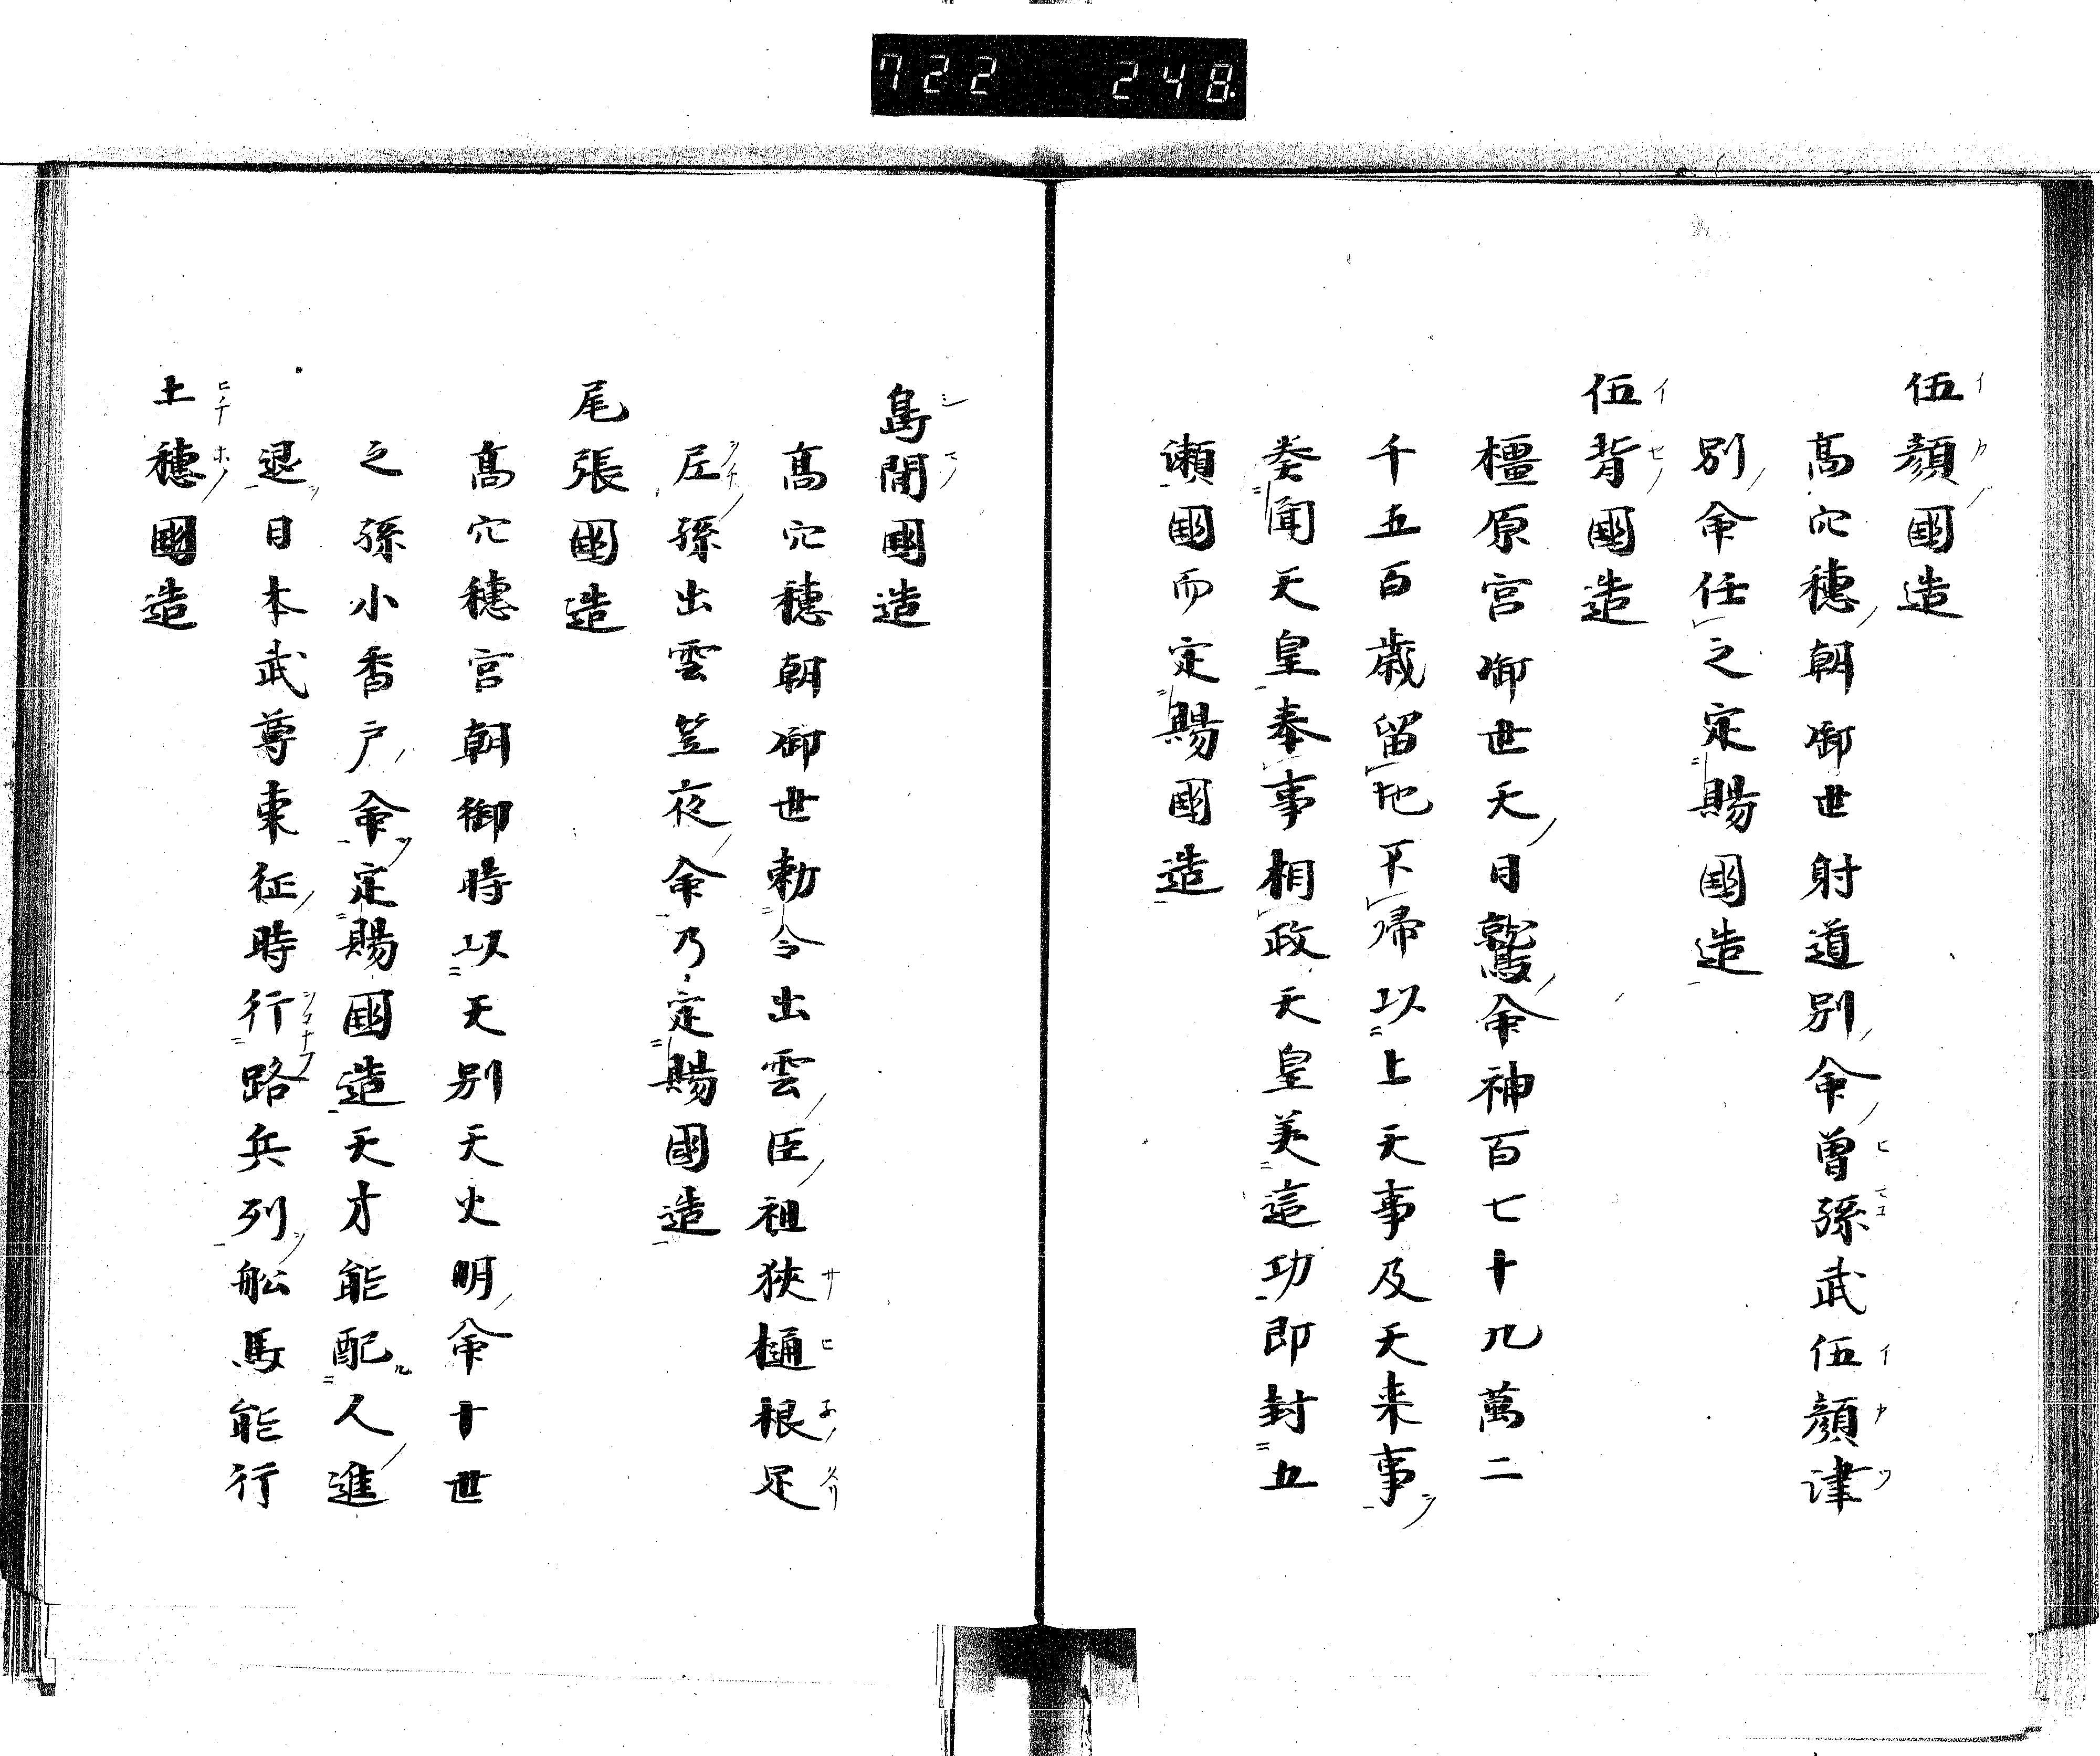 722 248
伍顔國造
高穴穂朝御世射道別命曾孫武伍顔津
別命任之定賜國造
伍背國造
橿原宮御世天日鷲命神百七十九萬二
千五百歳留地不帰以上天事及天来事
奏聞天皇奉事相政天皇美這功即封五
瀬國而定賜國造
島間國造
高穴穂朝御世勅令出雲臣祖狭樋根足
尼孫出雲笠夜命乃定賜國造
尾張國造
高穴穂宮朝御時以天別天火明命十世
之孫小香戸命定賜國造天才能配人進
退日本武尊東征時行路兵列舩馬能行
土穂國造